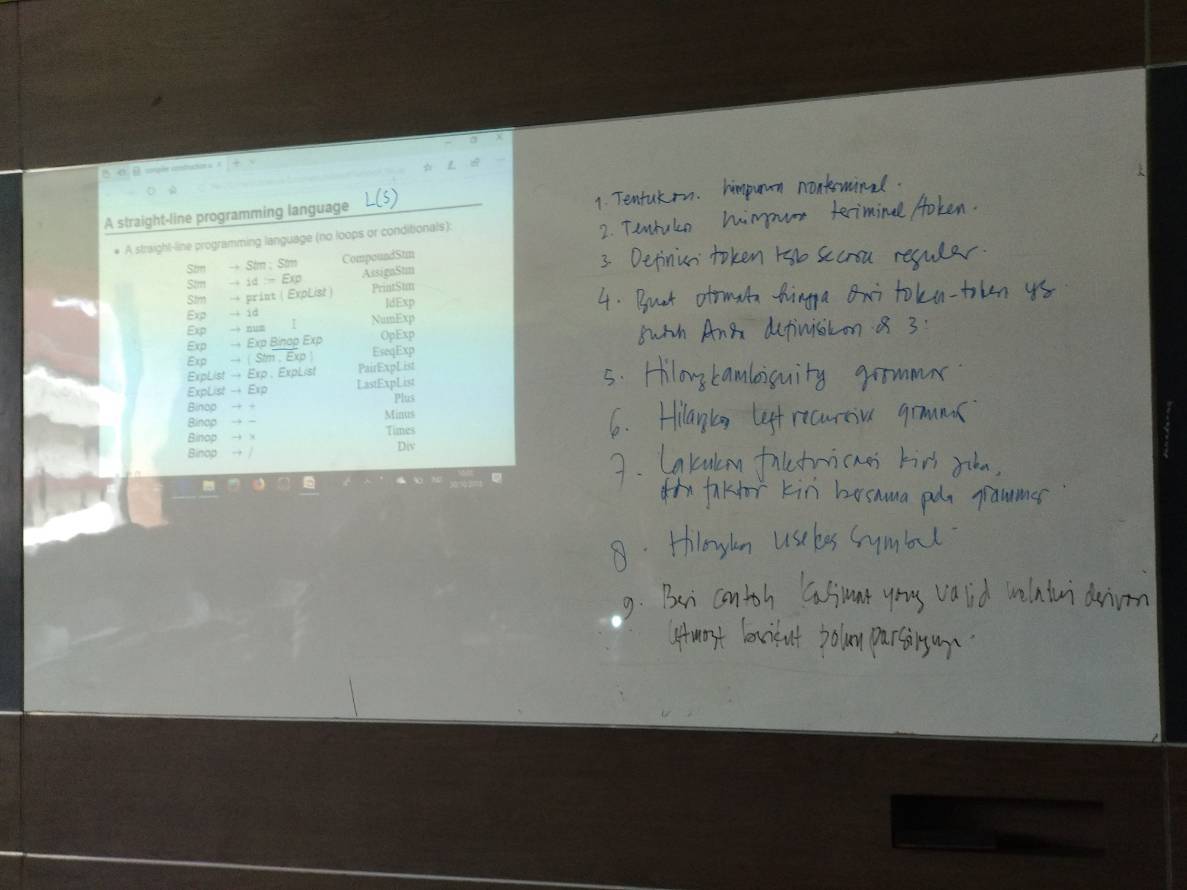 compiler construction
A straight-line programming language L(S)
• A straight-line programming language (no loops or conditionals):
Stm → Stm ; Stm CompoundStm
Stm → id := Exp AssignStm
Stm → print ( ExpList ) PrintStm
Exp → id IdExp
Exp → num NumExp
Exp → Exp Binop Exp OpExp
Exp → ( Stm , Exp ) EseqExp
ExpList → Exp , ExpList PairExpList
ExpList → Exp LastExpList
Binop → + Plus
Binop → − Minus
Binop → × Times
Binop → / Div
30/10/2018
1. Tentukan himpunan nonterminal.
2. Tentuka himpunan teriminal/token.
3. Definisi token tsb secara reguler.
4. Buat otomata hingga dari token-token yg
sudah Anda definisikan di 3:
5. Hilangkambiguity grammar
6. Hilangka left recursive grammar
7. Lakukan faktorisasi kiri jika,
ada faktor kiri bersama pada grammar
8. Hilangka useles symbol
9. Beri contoh kalimat yang valid melalui derivasi
leftmost berikut pohon parsingnya.